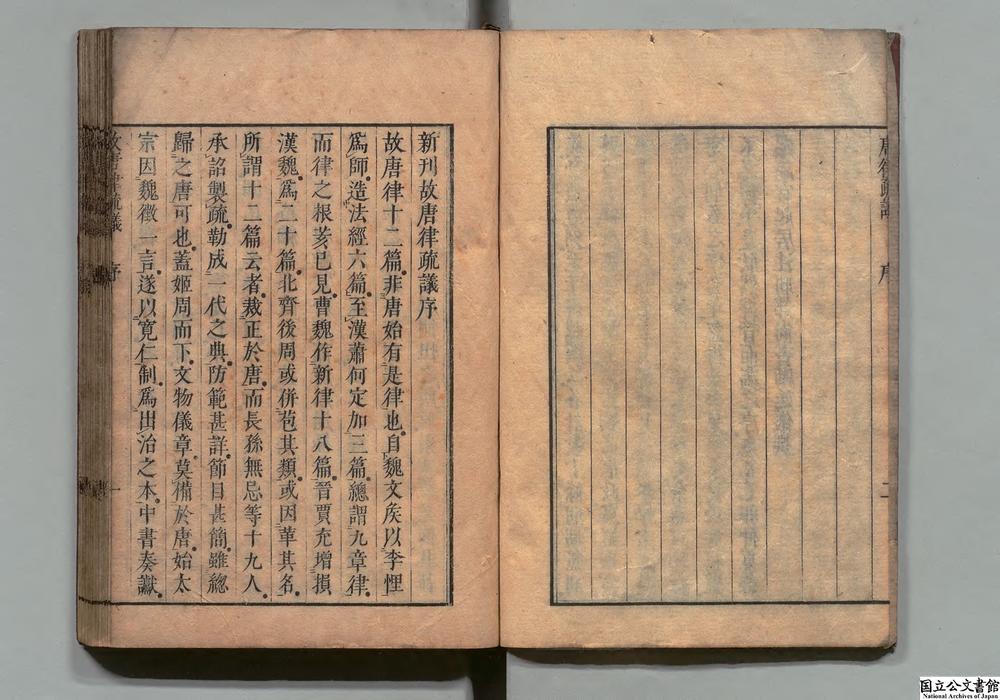 唐律疏議 序 二
新刊故唐律疏議序
故唐律十二篇。非唐始有是律也。自魏文矦以李悝
爲師。造法經六篇。至漢蕭何定加三篇。總謂九章律。
而律之根荄已見。曹魏作新律十八篇。晉賈充增損
漢魏。爲二十篇。北齊後周或併苞其類。或因革其名。
所謂十二篇云者。裁正於唐。而長孫無忌等十九人。
承詔製疏。勒成一代之典。防範甚詳。節目甚簡。雖總
歸之唐可也。蓋姬周而下。文物儀章。莫備於唐。始太
宗因魏徵一言。遂以寬仁制爲出治之本。中書奏讞。
故唐律疏議 序 一
国立公文書館
National Archives of Japan